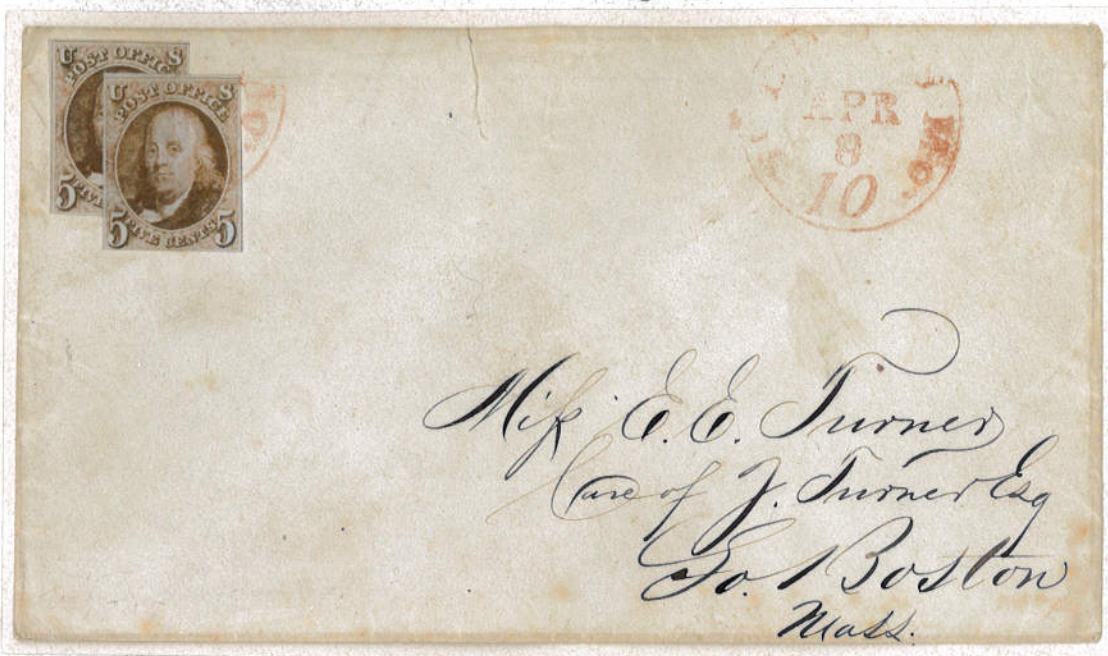 U S
POST OFFIC
5
FIVE
U S
POST OFFICE
5 5
FIVE CENTS
APR
8
10
Mo.
Miſs E. E. Turner
Care of J. Turner Esq
So. Boston
Mass.